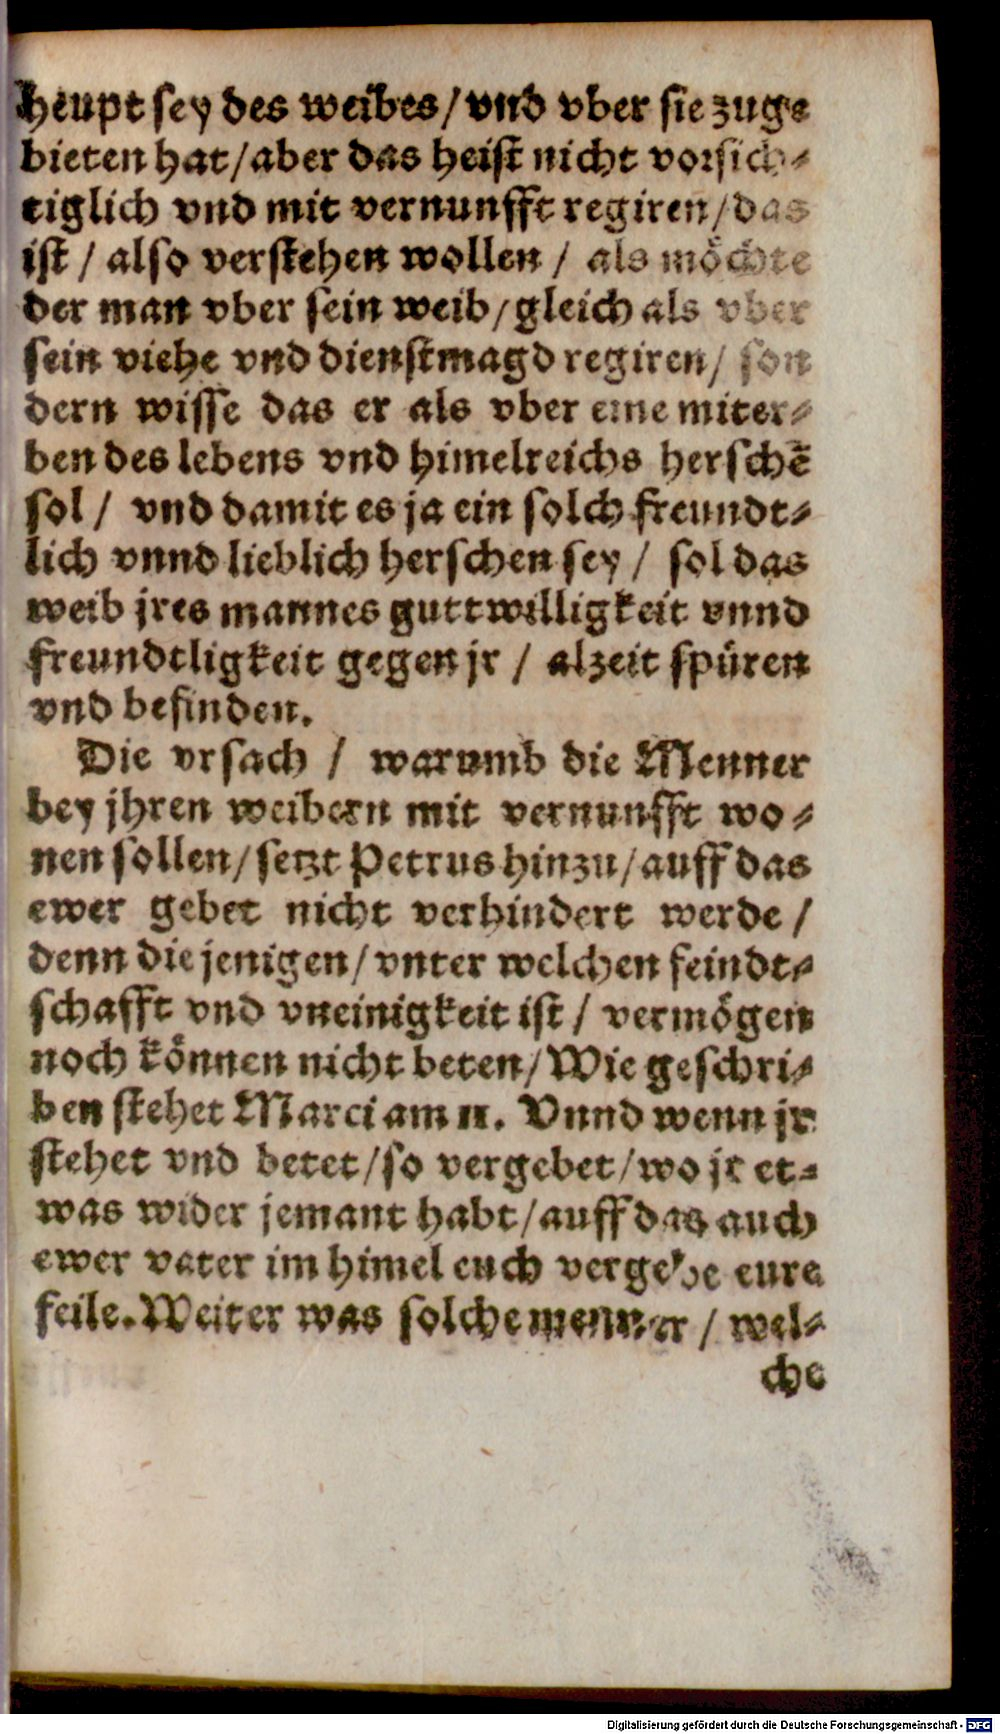 heupt sey des weibes / vnd vber sie zuge
bieten hat / aber das heist nicht vorsich-
tiglich vnd mit vernunfft regiren / das
ist / also verstehen wollen / als möchte
der man vber sein weib / gleich als vber
sein viehe vnd dienstmagd regiren / son
dern wisse das er als vber eine miter-
ben des lebens vnd himelreichs herschē
sol / vnd damit es ja ein solch freundt-
lich vnnd lieblich herschen sey / sol das
weib jres mannes guttwilligkeit vnnd
freundtligkeit gegen jr / alzeit spüren
vnd befinden.
Die vrsach / warumb die Menner
bey jhren weibern mit vernunfft wo-
nen sollen / setzt Petrus hinzu / auff das
ewer gebet nicht verhindert werde /
denn die jenigen / vnter welchen feindt-
schafft vnd vneinigkeit ist / vermögen
noch können nicht beten / Wie geschri-
ben stehet Marci am 11. Vnnd wenn jr
stehet vnd betet / so vergebet / wo jr et-
was wider jemant habt / auff das auch
ewer vater im himel euch vergebe eure
feile. Weiter was solche menner / wel-
che
Digitalisierung gefördert durch die Deutsche Forschungsgemeinschaft - DFG